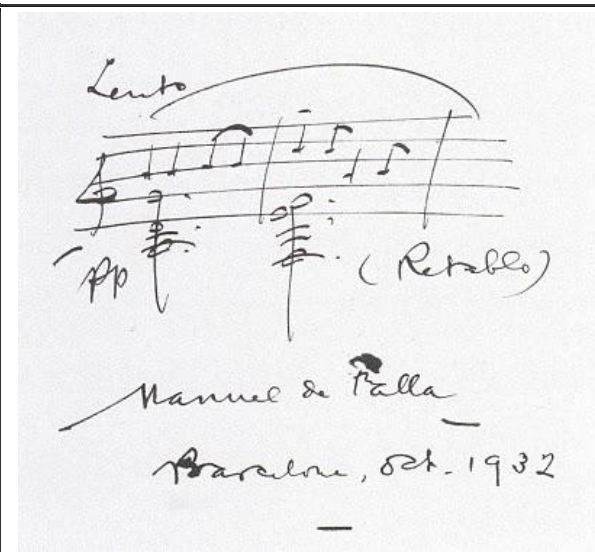 Lento
pp (Retablo)
Manuel de Falla
Barcelona, oct. 1932